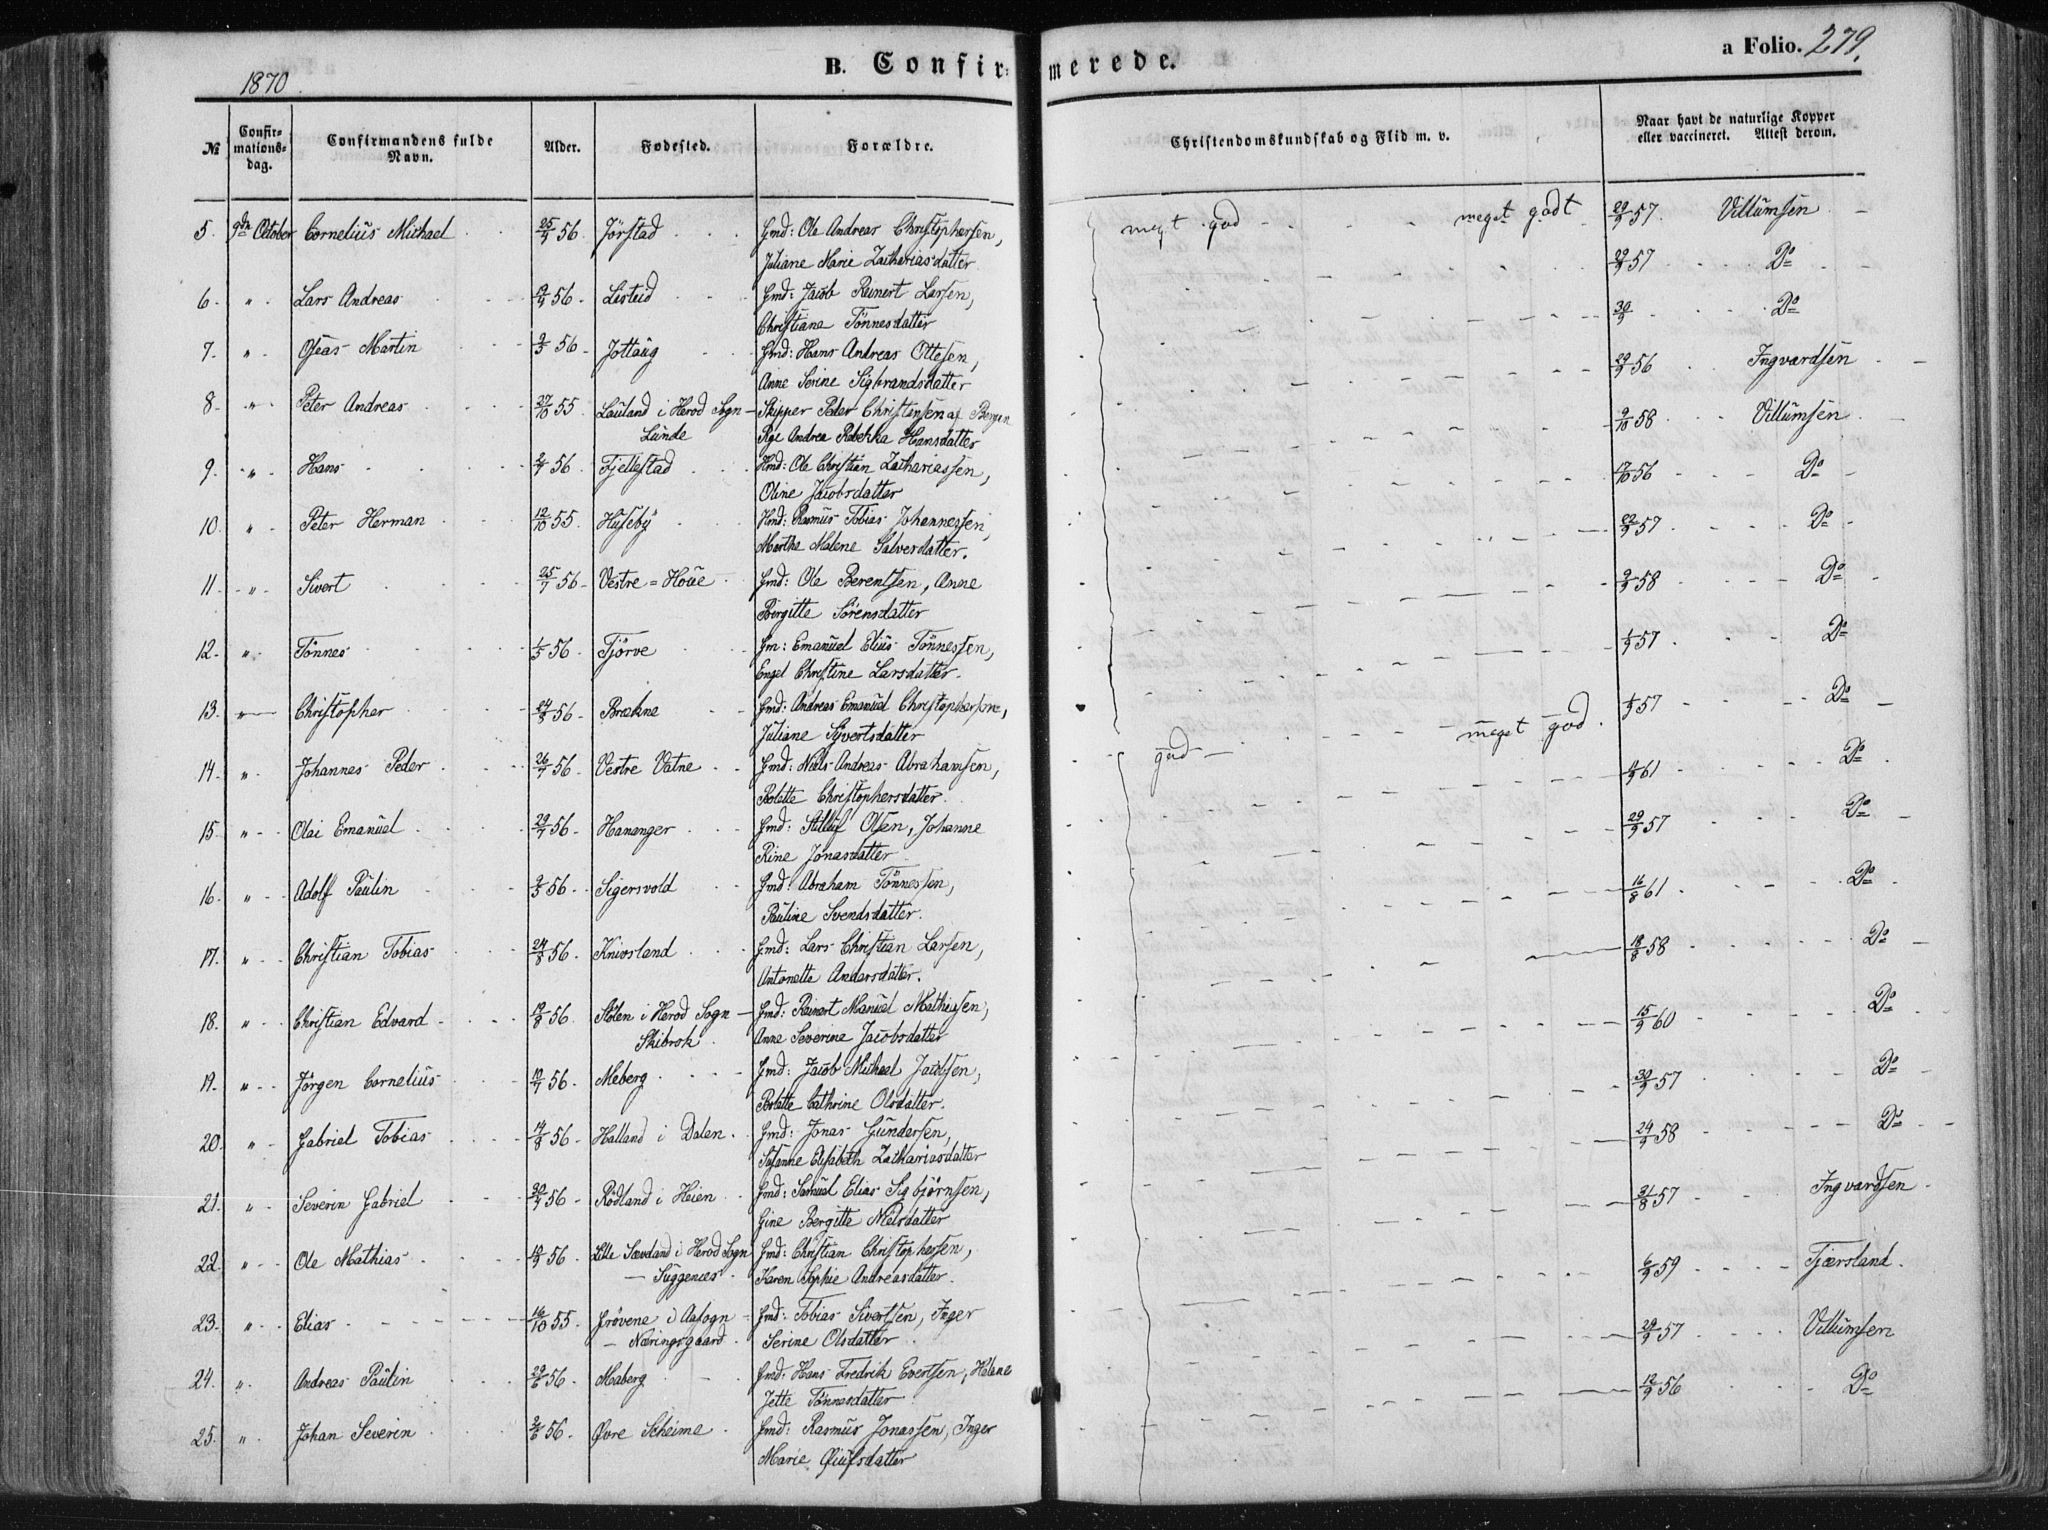 1870
B. Confir= merede.
a Folio. 279.
№ Confirmations-dag. Confirmandens fulde Navn. Alder. Fødested. Forældre. Christendomskundskab og Flid m. v. Naar havt de naturlige Kopper eller vaccineret. Attest derom.
5. 9de October Cornelius Michael 25/9 56. Jörstad Gmd: Ole Andreas Christophersen, meget god meget godt 29/9 57. Villumsen
Juliane Marie Zachariasdatter
6. " Lars Andreas 19/9 56. Listeid Gmd: Jacob Reinert Larsen, 29/9 57 Do
Christiane Tönnesdatter
7. " Oseas Martin 9/5 56. Jottaug Gmd: Hans Andreas Ottesen, 30/9 Do
Anne Serine Sigbrandsdatter
8. " Peter Andreas 27/10 55. Lauland i Herod Sogn Skipper Peder Christensen af Bergen 29/9 56 Ingvardsen
Lunde Pge Andrea Rebekka Hansdatter
9. " Hans 2/7 56. Fjellestad Hmd: Ole Christian Zachariassen, 9/10 58 Villumsen
Oline Jacobsdatter
10. " Peter Herman 12/10 55. Huseby Hmd: Rasmus Tobias Johannessen, 17/10 56 Do
Marthe Malene Salvesdatter.
11. " Sivert 25/7 56. Vestre=Houe Gmd: Ole Berentsen, Anne 22/9 57 Do
Bergitte Sörensdatter
12. " Tönnes 1/5 56. Tjörve Gm: Emanuel Elius Tönnessen, 9/9 58 Do
Engel Christine Larsdatter.
13. " Christopher 24/8 56. Brækne Gmd: Andreas Emanuel Christophersen, 1/9 57 Do
Juliane Syvertsdatter
14. " Johannes Peder 26/7 56. Vestre Vatne Gmd: Niels Andreas Abrahamsen, god meget god. 57 Do
Bolette Christophersdatter.
15. " Olai Emanuel 29/7 56. Hananger Gmd: Stillef Olsen, Johanne 61 Do
Rine Jonasdatter
16. " Adolf Paulin 9/5 56. Sigersvold Gmd: Abraham Tönnessen, 29/9 57 Do
Pauline Svendsdatter.
17. " Christian Tobias 24/8 56. Knivsland Gmd: Lars Christian Larsen, 16/8 61 Do
Antonette Andersdatter.
18. " Christian Edvard 19/8 56. Stölen i Herod Sogn Gmd: Reinert Manuel Mathiasen, 18/8 58 Do
Skibrok Anne Severine Jacobsdatter
19. " Jörgen Cornelius 19/7 56. Meberg Gmd: Jacob Michael Jacobsen, 15/9 60 Do
Bolette Cathrine Olsdatter.
20. " Gabriel Tobias 14/8 56. Halland i Dalen Gmd: Jonas Gundersen, 30/9 57 Do
Susanne Elisabeth Zachariasdatter
21. " Severin Gabriel 30/4 56. Rödland i Heien Gmd: Samuel Elias Sigbjörnssen, 24/9 58 Do
Gine Bergitte Nielsdatter
22. " Ole Mathias 56. Lille Sævland i Herod Sogn Gmd: Christian Christophersen, 31/8 57 Ingvardsen
Suggenæs Karen Sophie Andreasdatter.
23. " Elias 16/10 55. Grövene i Aasogn Gmd: Tobias Sivertsen, Inger 6/9 59 Tjærsland.
Næringsgaard Serine Olsdatter
24. " Andreas Paulin 29/6 56. Maberg Gmd: Hans Fredrik Evertsen, Helene 29/9 57 Villumsen
Jette Tönnesdatter
25. " Johan Severin 2/6 56. Øvre Scheime Gmd: Rasmus Jonassen, Inger 12/9 56 Do
Marie Øiufsdatter